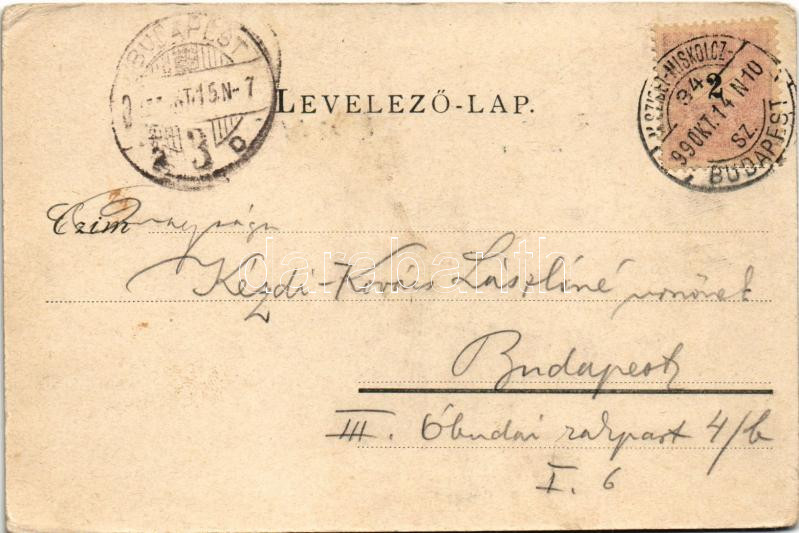 BUDAPEST
OKT. 15. N- 7
3
LEVELEZŐ-LAP.
M. SZIGET-MISKOLCZ-
34
2
99 OKT. 14 N 10
SZ.
BUDAPEST
Czim
Őnagysága
darabanth
Kézdi-Kovács Lászlóné
Budapest
III. Óbudai rakpart 4/b
I. 6